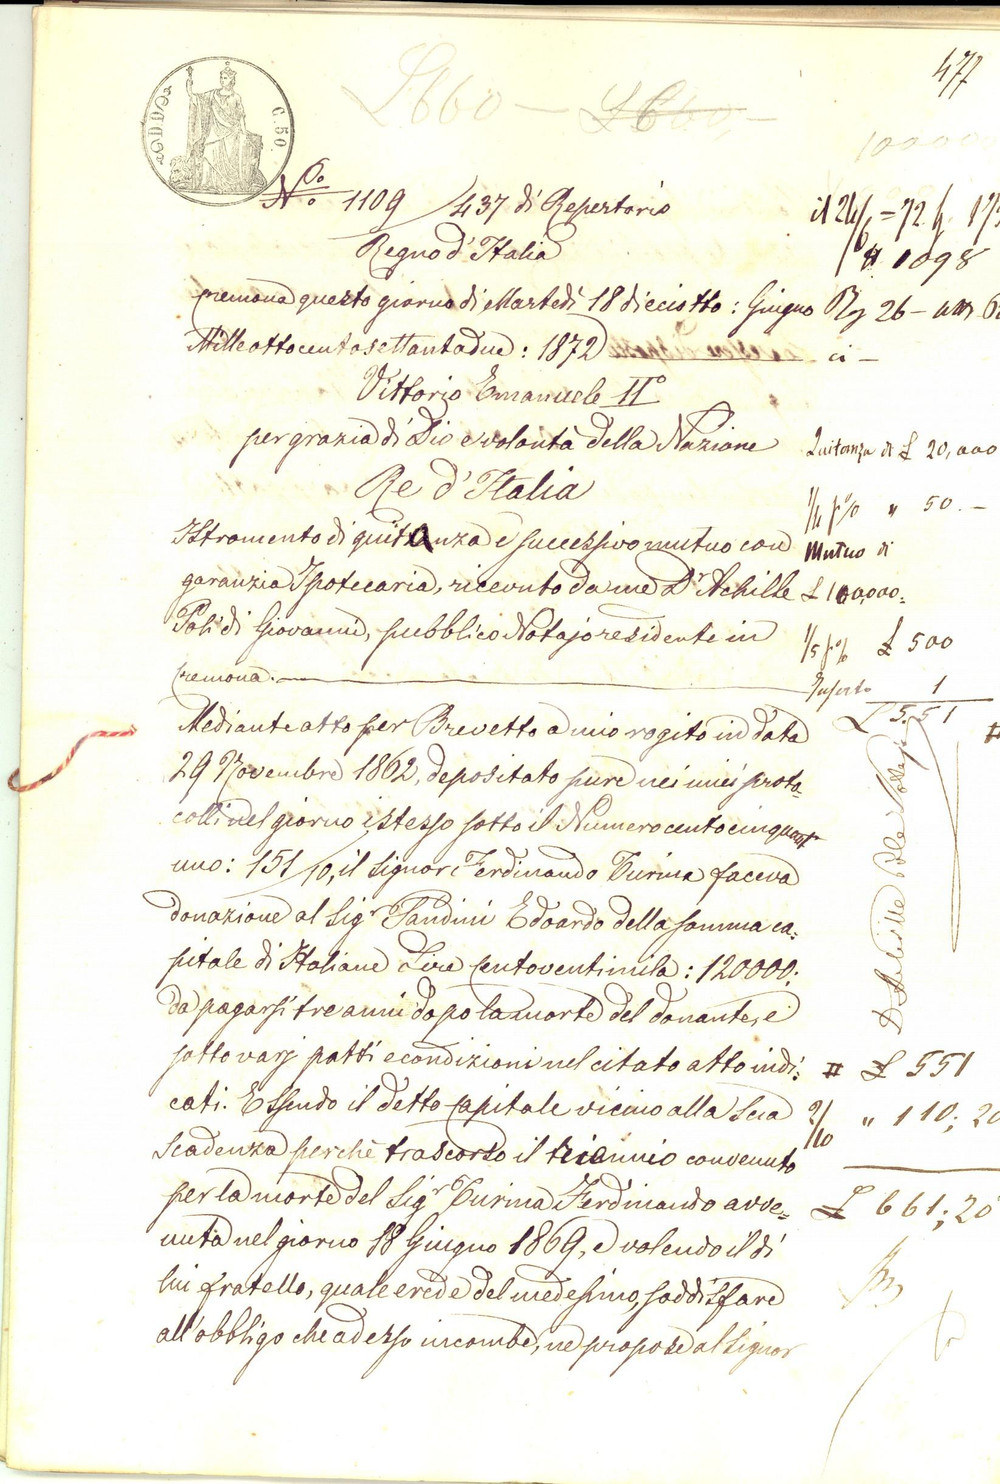 477
L 660 —
C. 50.
N.o 1109/437 di Repertorio
Regno d'Italia
Cremona questo giorno di Martedì 18 dieciotto: Giugno
Mille ottocento settantadue: 1872
Vittorio Emanuele II°
per grazia di Dio e volontà della Nazione
Re d'Italia
Istromento di quitanza e successivo mutuo con
garanzia Ipotecaria, ricevuto da me Dr Achille
Poli di Giovanni, pubblico Notajo residente in
Cremona.
Mediante atto per Brevetto a mio rogito in data
29 Novembre 1862, depositato pure nei miei proto-
colli nel giorno istesso sotto il Numero cento cinquant
uno: 151/10, il Signor Ferdinando Turina faceva
donazione al Sigr Pandini Edoardo della somma ca-
pitale di Italiane Lire Centoventimila: 120000:
da pagarsi tre anni dopo la morte del donante, e
sotto varj patti e condizioni nel citato atto indi-
cati. Essendo il detto Capitale vicino alla sua
scadenza perchè trascorso il triennio convenuto
per la morte del Sigr Turina Ferdinando avve-
nuta nel giorno 18 Giugno 1869, e volendo il di
lui fratello, quale erede del medesimo, soddisfare
all'obbligo che ad esso incombe, ne propose al Signor
il 24/6 = 72
# 1098
26
Quitanza di £ 20,000
1/4 p% " 50. -
Mutuo di
£ 100,000=
1/5 p% £ 500
Inserto 1
£ 551
#
# £ 551
2/10 " 110; 20
£ 661; 20